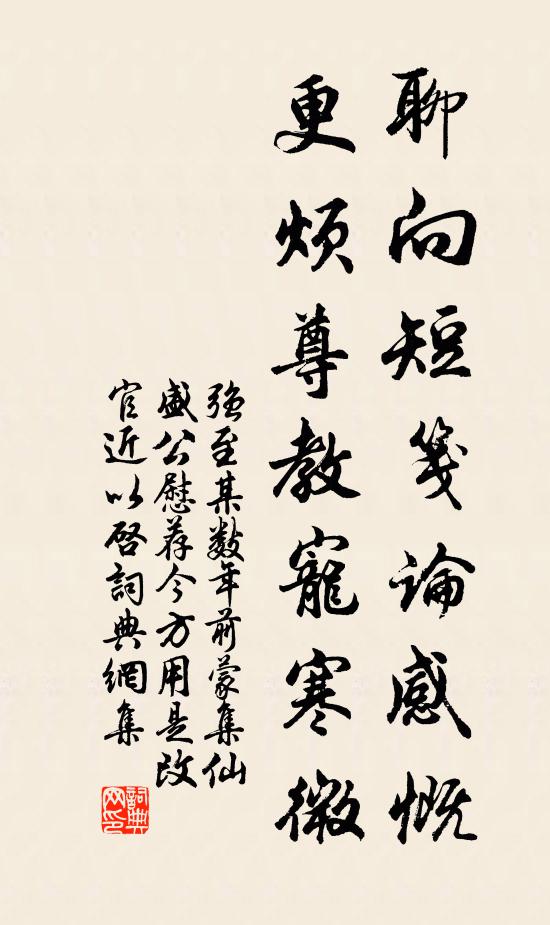 聊向短箋論感慨
更煩尊教寵寒微
強至某數年前蒙集仙
盛公慰荐今方用是改
官近以啓詞典網集
詞典網印